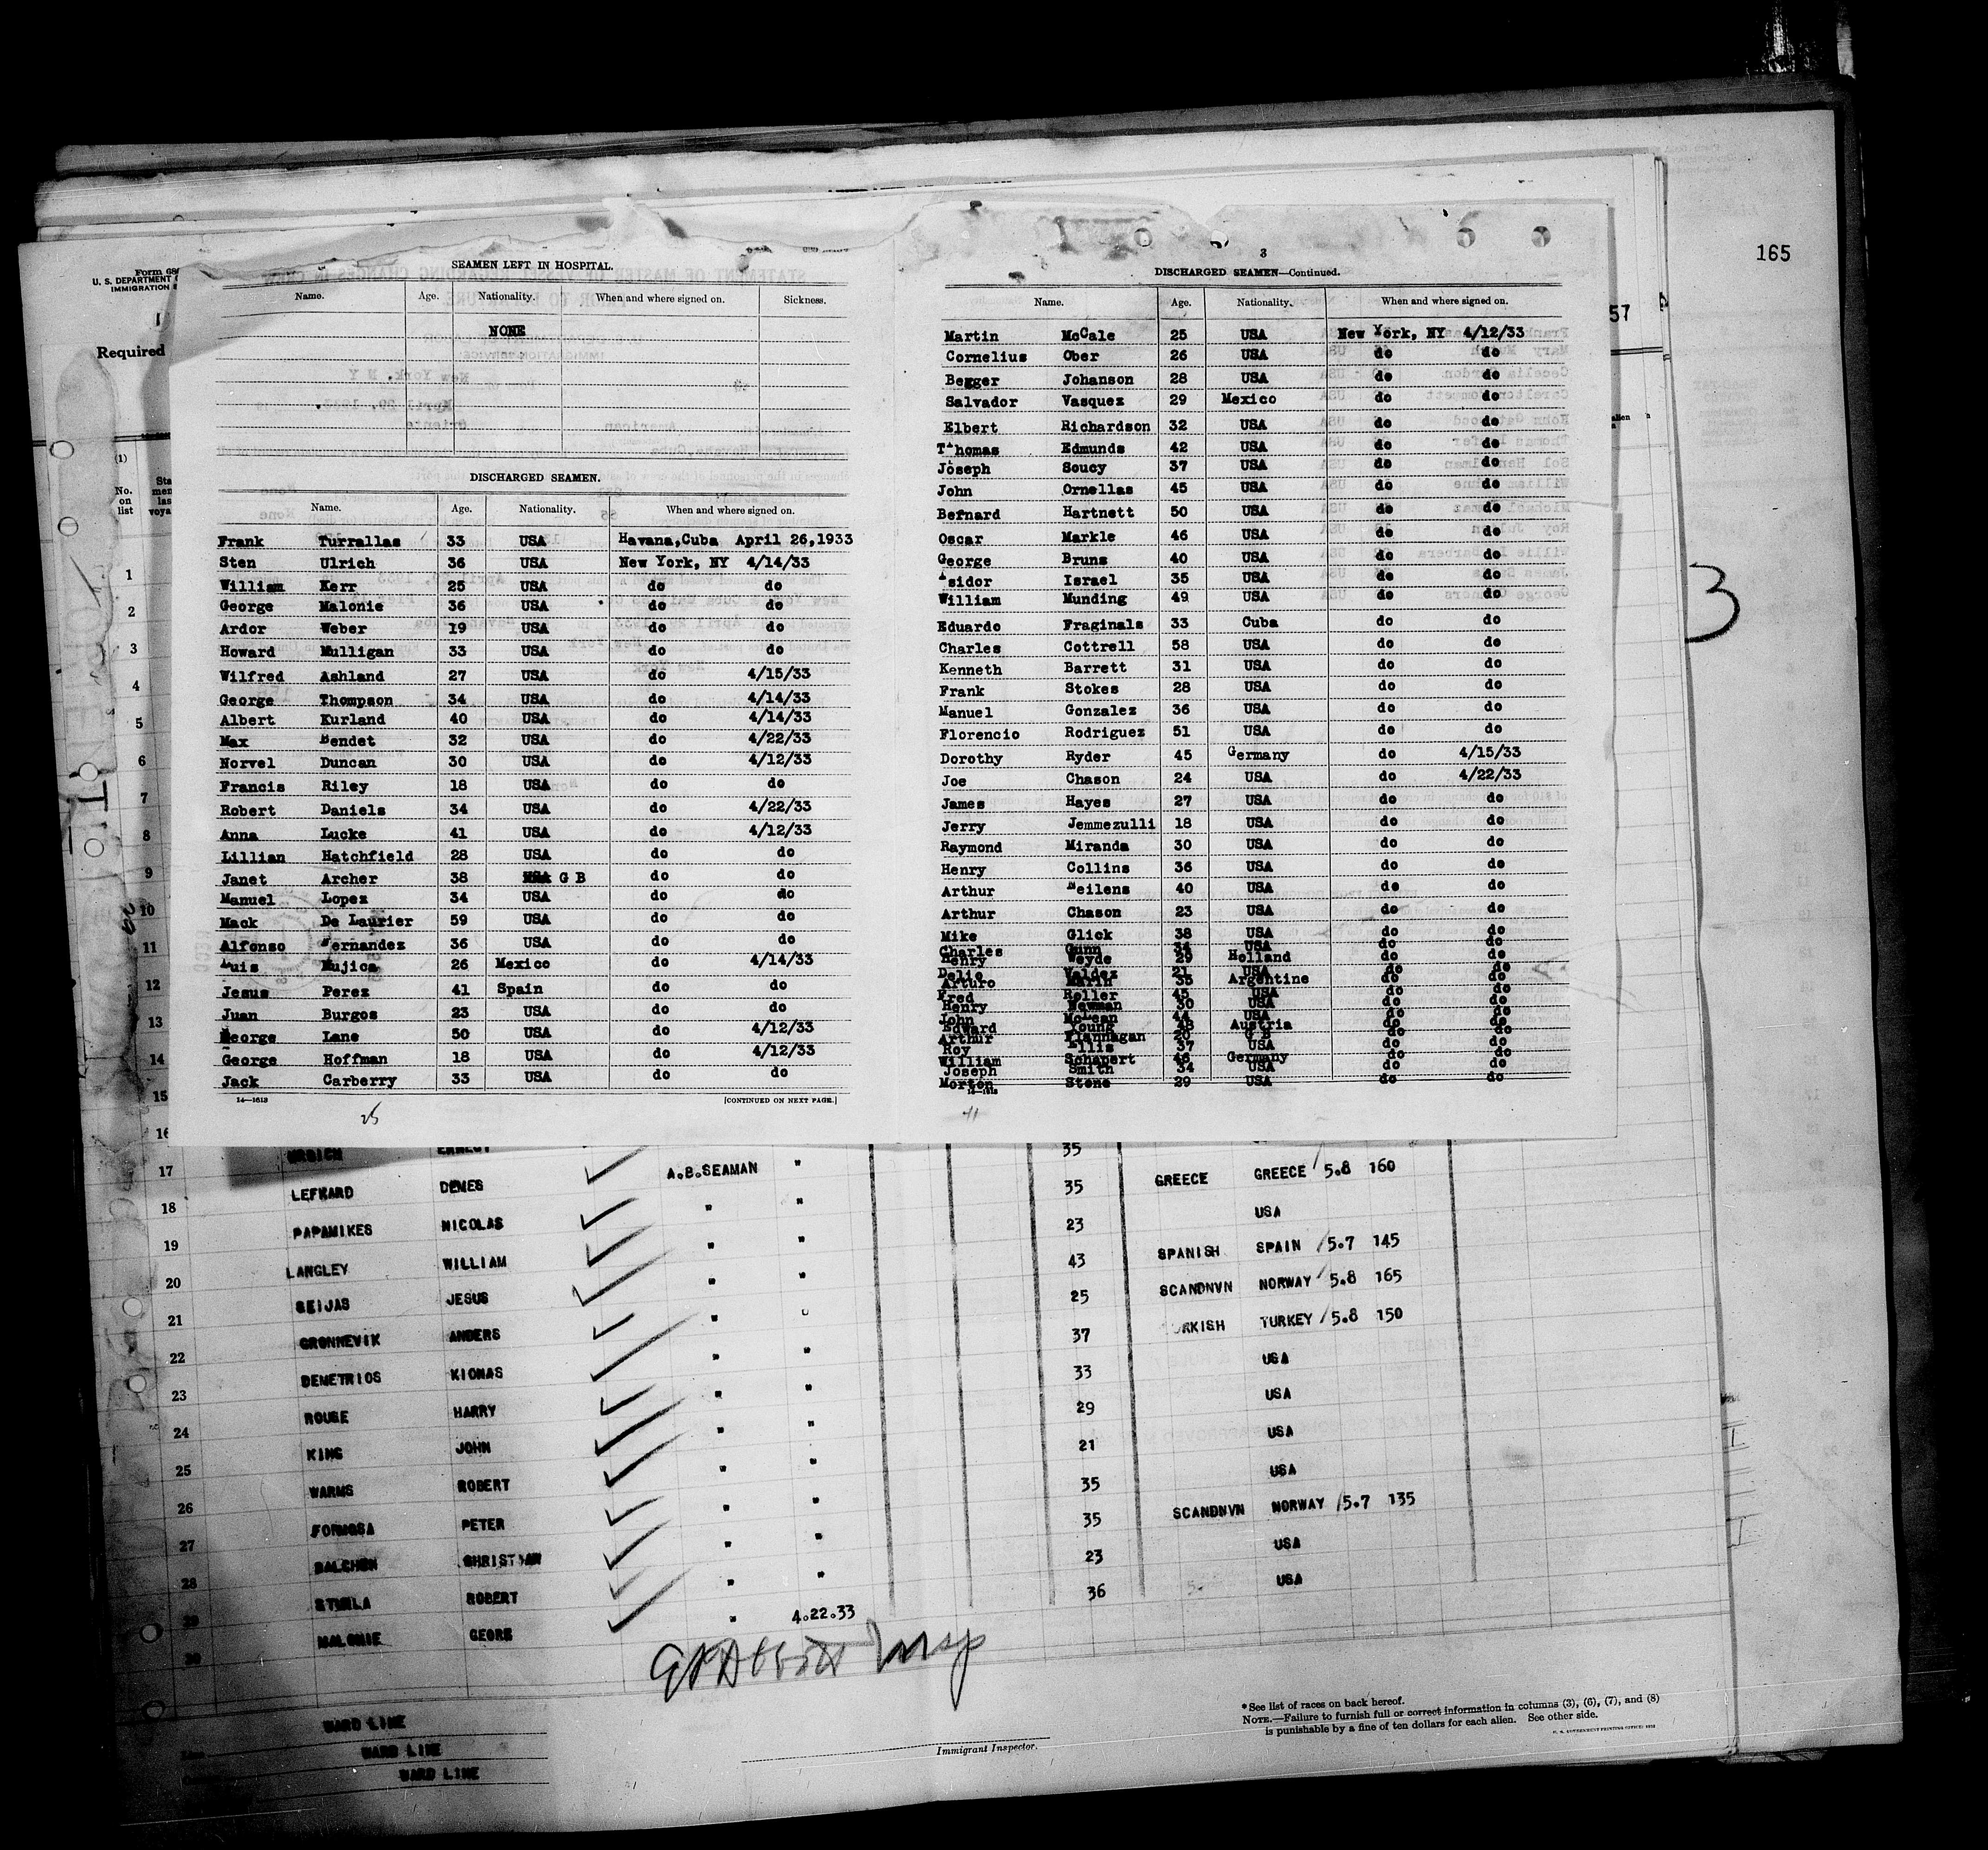 165
Form 68
U. S. DEPARTMENT
IMMIGRATION
Required
57
3
(1)
No. on list
SEAMEN LEFT IN HOSPITAL.
Name. Age. Nationality. When and where signed on. Sickness.
NONE
DISCHARGED SEAMEN.
Name. Age. Nationality. When and where signed on.
Frank Turrallas 33 USA Havana,Cuba April 26,1933
Sten Ulrich 36 USA New York, NY 4/14/33
William Kerr 25 USA do do
George Malonie 36 USA do do
Ardor Weber 19 USA do do
Howard Mulligan 33 USA do do
Wilfred Ashland 27 USA do 4/15/33
George Thompson 34 USA do 4/14/33
Albert Kurland 40 USA do 4/14/33
Max Bendet 32 USA do 4/22/33
Norvel Duncan 30 USA do 4/12/33
Francis Riley 18 USA do do
Robert Daniels 34 USA do 4/22/33
Anna Lucke 41 USA do 4/12/33
Lillian Hatchfield 28 USA do do
Janet Archer 38 G B do do
Manuel Lopez 34 USA do do
Mack De Laurier 59 USA do do
Alfonso Hernandez 36 USA do do
Luis Mujica 26 Mexico do 4/14/33
Jesus Perez 41 Spain do do
Juan Burgos 23 USA do do
George Lane 50 USA do 4/12/33
George Hoffman 18 USA do 4/12/33
Jack Carberry 33 USA do do
14—1613 [CONTINUED ON NEXT PAGE.]
25
3
DISCHARGED SEAMEN—Continued.
Name. Age. Nationality. When and where signed on.
Martin McCale 25 USA New York, NY 4/12/33
Cornelius Ober 26 USA do do
Begger Johanson 28 USA do do
Salvador Vasquez 29 Mexico do do
Elbert Richardson 32 USA do do
Thomas Edmunds 42 USA do do
Joseph Soucy 37 USA do do
John Ornellas 45 USA do do
Bernard Hartnett 50 USA do do
Oscar Markle 46 USA do do
George Bruns 40 USA do do
Isidor Israel 35 USA do do
William Munding 49 USA do do
Eduardo Fraginals 33 Cuba do do
Charles Cottrell 58 USA do do
Kenneth Barrett 31 USA do do
Frank Stokes 28 USA do do
Manuel Gonzalez 36 USA do do
Florencio Rodriguez 51 USA do do
Dorothy Ryder 45 Germany do 4/15/33
Joe Chason 24 USA do 4/22/33
James Hayes 27 USA do do
Jerry Jemmezulli 18 USA do do
Raymond Miranda 30 USA do do
Henry Collins 36 USA do do
Arthur Neilens 40 USA do do
Arthur Chason 23 USA do do
Mike Glick 38 USA do do
Charles Gunn 34 USA do do
Henry Weyde 29 Holland do do
Delio Valdez 21 USA do do
Arturo Marin 35 Argentine do do
Fred Roller 45 USA do do
Henry Newman 30 USA do do
John McLean 44 USA do do
Edward Young 48 Austria do do
Arthur Flannagan 20 G B do do
Roy Ellis 37 USA do do
William Schapert 46 Germany do do
Joseph Smith 34 USA do do
Morton Stone 29 USA do do
14—1613
41
1
2
3
4
5
6
7
8
9
10
11
12
13
14
15
16
35
17 LEFKARD DEMES A.B.SEAMAN " 35 GREECE GREECE 5.8 160
18 PAPAMIKES NICOLAS " " 23 USA
19 LANGLEY WILLIAM " " 43 SPANISH SPAIN 5.7 145
20 SEIJAS JESUS " " 25 SCANDNVN NORWAY 5.8 165
21 GRONNEVIK ANDERS " " 37 TURKEY 5.8 150
22 DEMETRIOS KIONAS " " 33 USA
23 ROUSE HARRY " " 29 USA
24 KING JOHN " " 21 USA
25 WARMS ROBERT " " 35 USA
26 FORMOSA PETER " " 35 SCANDNVN NORWAY 5.7 135
27 BALCHEN CHRISTIAN " " 23 USA
28 ROBERT " " 36 USA
29 MALONIE GEORE " 4.22.33
30
Insp
WARD LINE
WARD LINE
WARD LINE
Immigrant Inspector.
*See list of races on back hereof.
NOTE.—Failure to furnish full or correct information in columns (3), (6), (7), and (8)
is punishable by a fine of ten dollars for each alien. See other side.